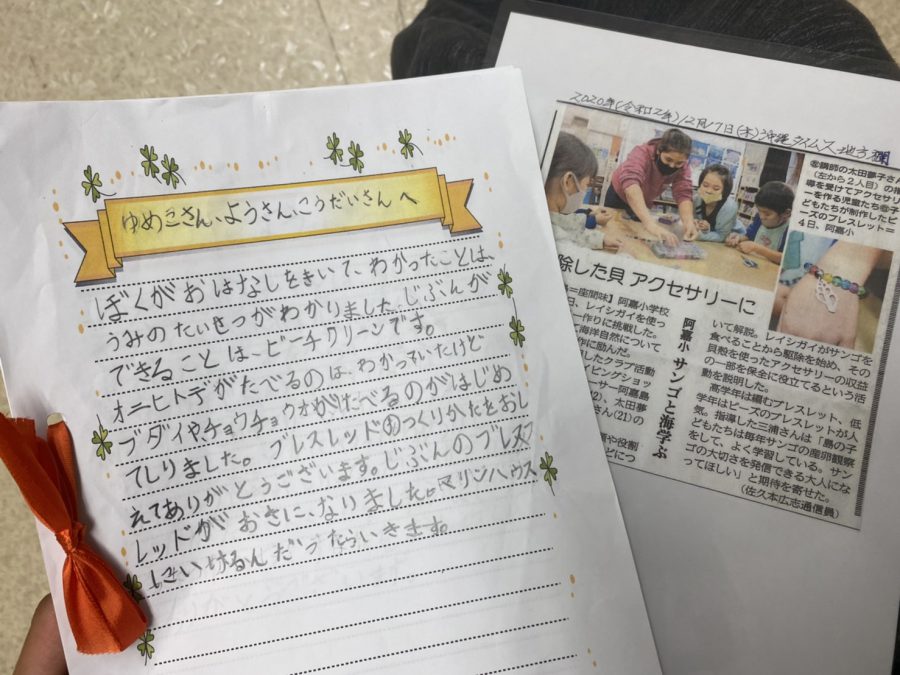 ゆめこさん、ようさん、こうだいさんへ
ぼくがおはなしをきいて、わかったことは、
うみのたいせつがわかりました。じぶんが
できることは、ビーチクリーンです。
オニヒトデがたべるのは、わかっていたけど
ブダイやチョウチョウウオがたべるのがはじめ
てしりました。ブレスレッドのつくりかたをおし
えてありがとうございます。じぶんのブレス
レッドがおきに、なりました。マリンハウス
にいけるんだったらいきます。
2020年(令和2年)12月17日(木)沖縄タイムス地方欄
講師の太田夢子さん
(左から2人目)の指
導を受けてアクセサリ
ーを作る児童たち㊨子
どもたちが制作したビ
ーズのブレスレット=
4日、阿嘉小
除した貝 アクセサリーに
阿嘉小 サンゴと海学ぶ
=座間味】阿嘉小学校
日、レイシガイを使っ
ー作りに挑戦した。
海洋自然について
作に励んだ。
したクラブ活動
イビングショッ
ーサー阿嘉島
2)、太田夢
さん(21)の
類や役割
などにつ
いて解説。レイシガイがサンゴを
食べることから駆除を始め、その
貝殻を使ったアクセサリーの収益
の一部を保全に役立てるという活
動を説明した。
高学年は編むブレスレット、低
学年はビーズのブレスレットが人
気。指導した三浦さんは「島の子
どもたちは毎年サンゴの産卵観察
をして、よく学習している。サン
ゴの大切さを発信できる大人にな
ってほしい」と期待を寄せた。
(佐久本広志通信員)